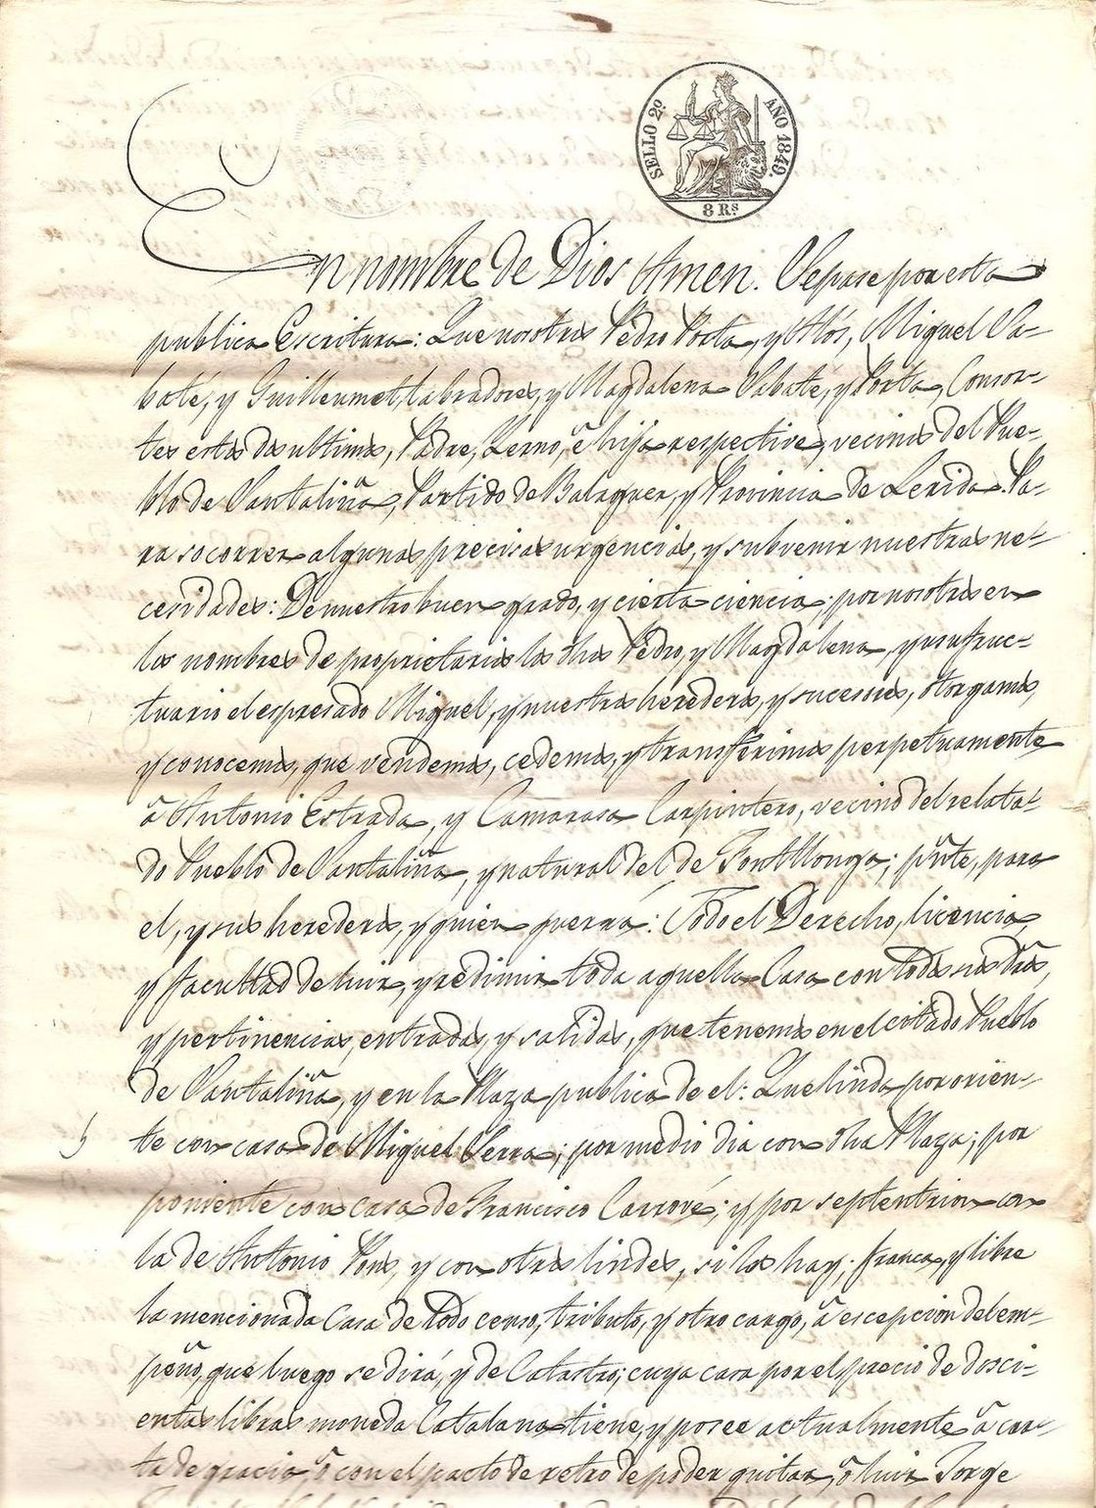 SELLO 2º AÑO 1849.
8 Rs
En nombre de Dios Amen. Sepase por esta
publica Escritura: Que nosotros Pedro Porta, y Alós, Miguel Sa-
baté, y Guilleumet, labradores, y Magdalena Sabaté, y Porta, Consor-
tes estos dos ultimos, Padre, Yerno, ê hija respective, vecinos del Pue-
blo de Santaliña, Partido de Balaguer, y Provincia de Lerida. Pa-
ra socorrer algunas precisas urgencias, y subvenir nuestras ne-
cesidades: De nuestro buen grado, y cierta ciencia; por nosotros en
los nombres de proprietarios los dhos Pedro, y Magdalena, y usufruc-
tuario el espresado Miguel, y nuestros herederos, y sucesores, otorgamos,
y conocemos, que vendemos, cedemos, y transferimos perpetuamente
â Antonio Estrada, y Camarasa Carpintero, vecino del relata-
do Pueblo de Santaliña, y natural del de Fontllonga; pnte, para
el, y sus herederos, y quien querrá: Todo el Derecho, licencia,
y facultad de luir, y redimir toda aquella Casa con todos sus dros,
y pertinencias, entradas, y salidas, que tenemos en el citado Pueblo
de Santaliña, y en la Plaza publica de el: Que linda por orien-
te con casa de Miguel Serra; por medio dia con dha Plaza; por
poniente con casa de Francisco Carrové; y por septentrion con
la de Antonio Pons, y con otros lindes, si los hay; franca, y libre
la mencionada Casa de todo censo, tributo, y otro cargo, â escepcion del em-
peño, que luego se dirá, y de Catastro; cuya casa por el precio de dosci-
entas libras moneda Catalana tiene, y posee actualmente â car-
ta de gracia, ô con el pacto de retro de poder quitar, ô luir Jorge